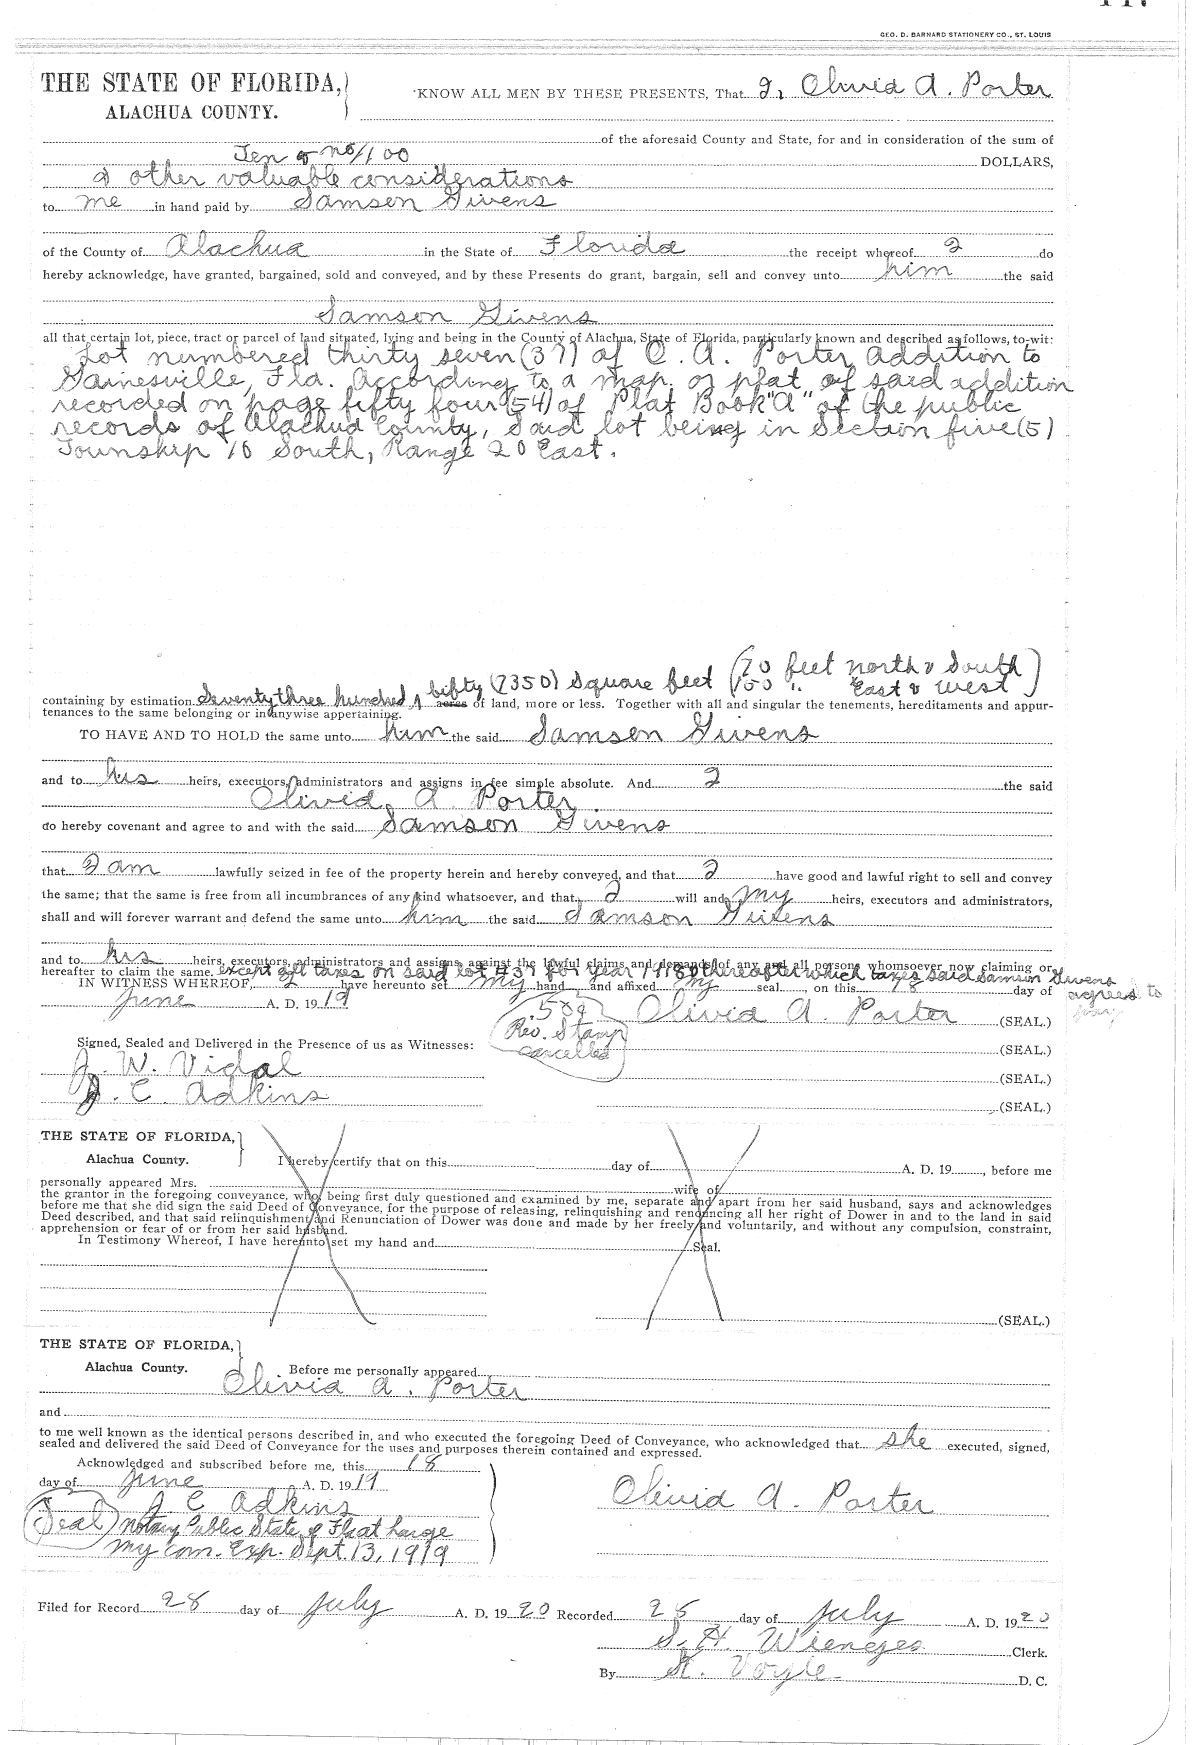 GEO. D. BARNARD STATIONERY CO., ST. LOUIS
THE STATE OF FLORIDA,
ALACHUA COUNTY.
KNOW ALL MEN BY THESE PRESENTS, That I, Olivia A. Porter
of the aforesaid County and State, for and in consideration of the sum of
Ten & no/100 DOLLARS,
& other valuable considerations
to me in hand paid by Samson Givens
of the County of Alachua in the State of Florida the receipt whereof I do
hereby acknowledge, have granted, bargained, sold and conveyed, and by these Presents do grant, bargain, sell and convey unto him the said
Samson Givens
all that certain lot, piece, tract or parcel of land situated, lying and being in the County of Alachua, State of Florida, particularly known and described as follows, to-wit:
Lot numbered thirty seven (37) of O. A. Porter addition to
Gainesville, Fla. According to a map or plat of said addition
recorded on page fifty four (54) of Plat Book "A" of the public
records of Alachua County, Said lot being in Section five (5)
Township 10 South, Range 20 East.
(70 feet north & South
containing by estimation Seventy three hundred & fifty (7350) Square feet
East & West)
acres of land, more or less. Together with all and singular the tenements, hereditaments and appur-
tenances to the same belonging or in anywise appertaining.
TO HAVE AND TO HOLD the same unto him the said Samson Givens
and to his heirs, executors, administrators and assigns in fee simple absolute. And I the said
Olivia A Porter
do hereby covenant and agree to and with the said Samson Givens
that I am lawfully seized in fee of the property herein and hereby conveyed, and that I have good and lawful right to sell and convey
the same; that the same is free from all incumbrances of any kind whatsoever, and that I will and my heirs, executors and administrators,
shall and will forever warrant and defend the same unto him the said Samson Givens
and to his heirs, executors, administrators and assigns against the lawful claims and demands of any and all persons whomsoever now claiming or
hereafter to claim the same. except all taxes on said lot #37 for year 1918 & thereafter which taxes said Samson Givens
agrees to
pay
IN WITNESS WHEREOF, I have hereunto set my hand and affixed my seal, on this 18 day of
June A. D. 1919
.50¢
Rev. Stamp
cancelled
Olivia A. Porter (SEAL.)
Signed, Sealed and Delivered in the Presence of us as Witnesses: (SEAL.)
J. W. Vidal (SEAL.)
J. C. Adkins (SEAL.)
THE STATE OF FLORIDA,
Alachua County.
I hereby certify that on this day of A. D. 19 , before me
personally appeared Mrs. wife of
the grantor in the foregoing conveyance, who being first duly questioned and examined by me, separate and apart from her said husband, says and acknowledges
before me that she did sign the said Deed of Conveyance, for the purpose of releasing, relinquishing and renouncing all her right of Dower in and to the land in said
Deed described, and that said relinquishment and Renunciation of Dower was done and made by her freely and voluntarily, and without any compulsion, constraint,
apprehension or fear of or from her said husband.
In Testimony Whereof, I have hereunto set my hand and Seal.
(SEAL.)
THE STATE OF FLORIDA,
Alachua County.
Before me personally appeared
Olivia A. Porter
and
to me well known as the identical persons described in, and who executed the foregoing Deed of Conveyance, who acknowledged that she executed, signed,
sealed and delivered the said Deed of Conveyance for the uses and purposes therein contained and expressed.
Acknowledged and subscribed before me, this 18
day of June A. D. 1919
Olivia A. Porter
J C Adkins
(Seal) Notary Public State of Fla at Large
My com. Exp. Sept. 13, 1919
Filed for Record 28 day of July A. D. 1920 Recorded 28 day of July A. D. 1920
S. H. Wienges Clerk.
By Voyle D. C.